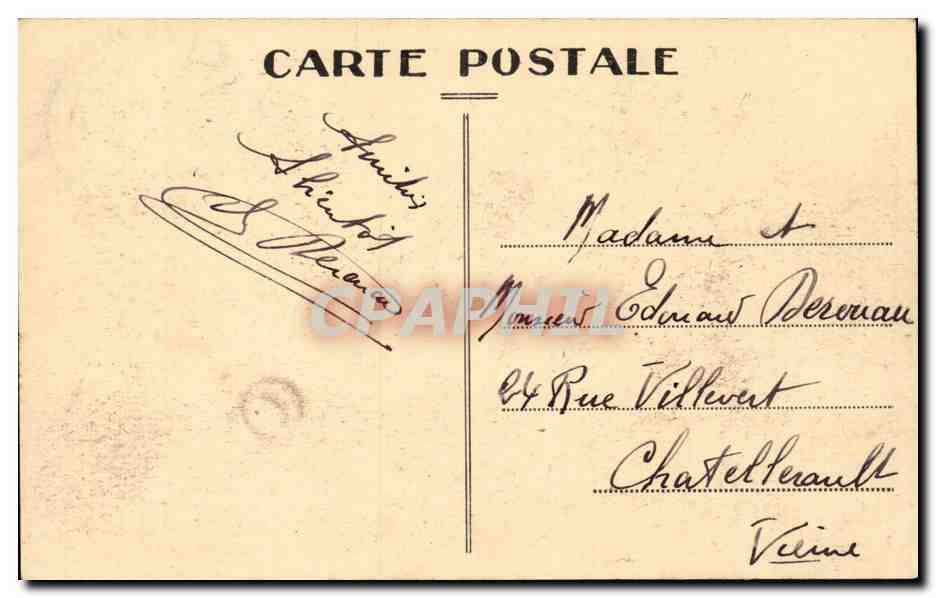 CARTE POSTALE
Amitiés
A bientôt
Madame et
Monsieur Edouard Derouau
24 Rue Villevert
Chatellerault
Vienne
CPAPHIL